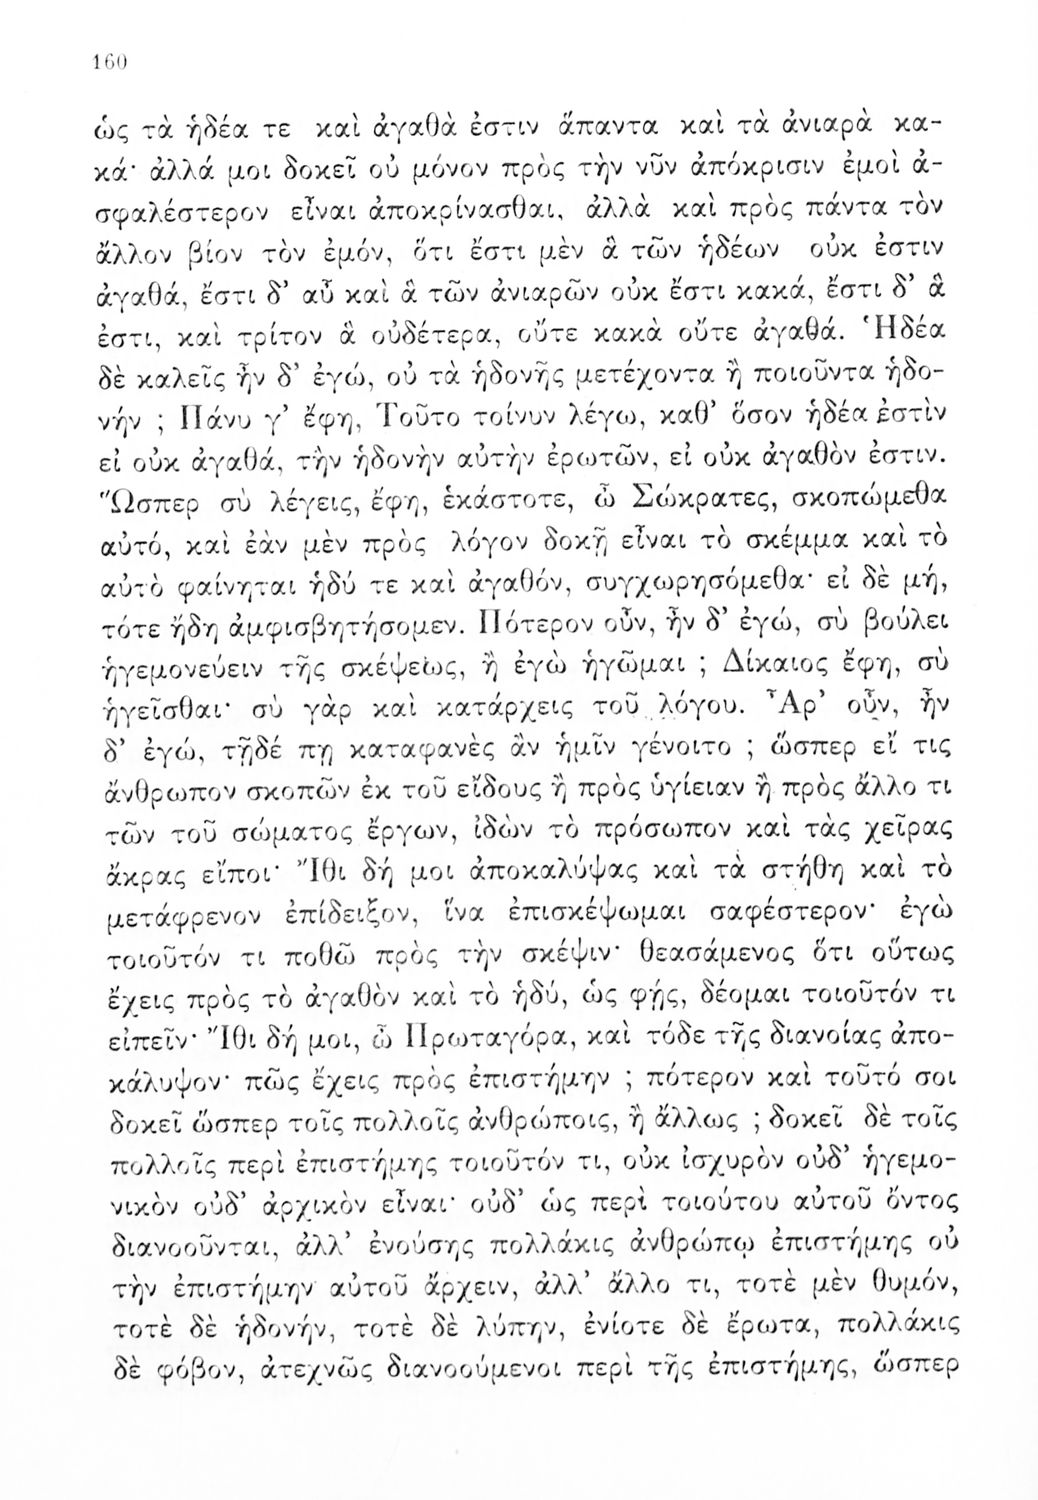 160
ὡς τὰ ἡδέα τε καὶ ἀγαθὰ ἐστιν ἅπαντα καὶ τὰ ἀνιαρὰ κα-
κά· ἀλλά μοι δοκεῖ οὐ μόνον πρὸς τὴν νῦν ἀπόκρισιν ἐμοὶ ἀ-
σφαλέστερον εἶναι ἀποκρίνασθαι, ἀλλὰ καὶ πρὸς πάντα τὸν
ἄλλον βίον τὸν ἐμόν, ὅτι ἔστι μὲν ἃ τῶν ἡδέων οὐκ ἐστιν
ἀγαθά, ἔστι δ’ αὖ καὶ ἃ τῶν ἀνιαρῶν οὐκ ἔστι κακά, ἔστι δ’ ἃ
ἐστι, καὶ τρίτον ἃ οὐδέτερα, οὔτε κακὰ οὔτε ἀγαθά. Ἡδέα
δὲ καλεῖς ἦν δ’ ἐγώ, οὐ τὰ ἡδονῆς μετέχοντα ἢ ποιοῦντα ἡδο-
νήν ; Πάνυ γ’ ἔφη, Τοῦτο τοίνυν λέγω, καθ’ ὅσον ἡδέα ἐστὶν
εἰ οὐκ ἀγαθά, τὴν ἡδονὴν αὐτὴν ἐρωτῶν, εἰ οὐκ ἀγαθὸν ἐστιν.
Ὥσπερ σὺ λέγεις, ἔφη, ἑκάστοτε, ὦ Σώκρατες, σκοπώμεθα
αὐτό, καὶ ἐὰν μὲν πρὸς λόγον δοκῇ εἶναι τὸ σκέμμα καὶ τὸ
αὐτὸ φαίνηται ἡδύ τε καὶ ἀγαθόν, συγχωρησόμεθα· εἰ δὲ μή,
τότε ἤδη ἀμφισβητήσομεν. Πότερον οὖν, ἦν δ’ ἐγώ, σὺ βούλει
ἡγεμονεύειν τῆς σκέψεως, ἢ ἐγὼ ἡγῶμαι ; Δίκαιος ἔφη, σὺ
ἡγεῖσθαι· σὺ γὰρ καὶ κατάρχεις τοῦ λόγου. Ἆρ’ οὖν, ἦν
δ’ ἐγώ, τῇδέ πῃ καταφανὲς ἂν ἡμῖν γένοιτο ; ὥσπερ εἴ τις
ἄνθρωπον σκοπῶν ἐκ τοῦ εἴδους ἢ πρὸς ὑγίειαν ἢ πρὸς ἄλλο τι
τῶν τοῦ σώματος ἔργων, ἰδὼν τὸ πρόσωπον καὶ τὰς χεῖρας
ἄκρας εἴποι· Ἴθι δή μοι ἀποκαλύψας καὶ τὰ στήθη καὶ τὸ
μετάφρενον ἐπίδειξον, ἵνα ἐπισκέψωμαι σαφέστερον· ἐγὼ
τοιοῦτόν τι ποθῶ πρὸς τὴν σκέψιν· θεασάμενος ὅτι οὕτως
ἔχεις πρὸς τὸ ἀγαθὸν καὶ τὸ ἡδύ, ὡς φῄς, δέομαι τοιοῦτόν τι
εἰπεῖν· Ἴθι δή μοι, ὦ Πρωταγόρα, καὶ τόδε τῆς διανοίας ἀπο-
κάλυψον· πῶς ἔχεις πρὸς ἐπιστήμην ; πότερον καὶ τοῦτό σοι
δοκεῖ ὥσπερ τοῖς πολλοῖς ἀνθρώποις, ἢ ἄλλως ; δοκεῖ δὲ τοῖς
πολλοῖς περὶ ἐπιστήμης τοιοῦτόν τι, οὐκ ἰσχυρὸν οὐδ’ ἡγεμο-
νικὸν οὐδ’ ἀρχικὸν εἶναι· οὐδ’ ὡς περὶ τοιούτου αὐτοῦ ὄντος
διανοοῦνται, ἀλλ’ ἐνούσης πολλάκις ἀνθρώπῳ ἐπιστήμης οὐ
τὴν ἐπιστήμην αὐτοῦ ἄρχειν, ἀλλ’ ἄλλο τι, τοτὲ μὲν θυμόν,
τοτὲ δὲ ἡδονήν, τοτὲ δὲ λύπην, ἐνίοτε δὲ ἔρωτα, πολλάκις
δὲ φόβον, ἀτεχνῶς διανοούμενοι περὶ τῆς ἐπιστήμης, ὥσπερ